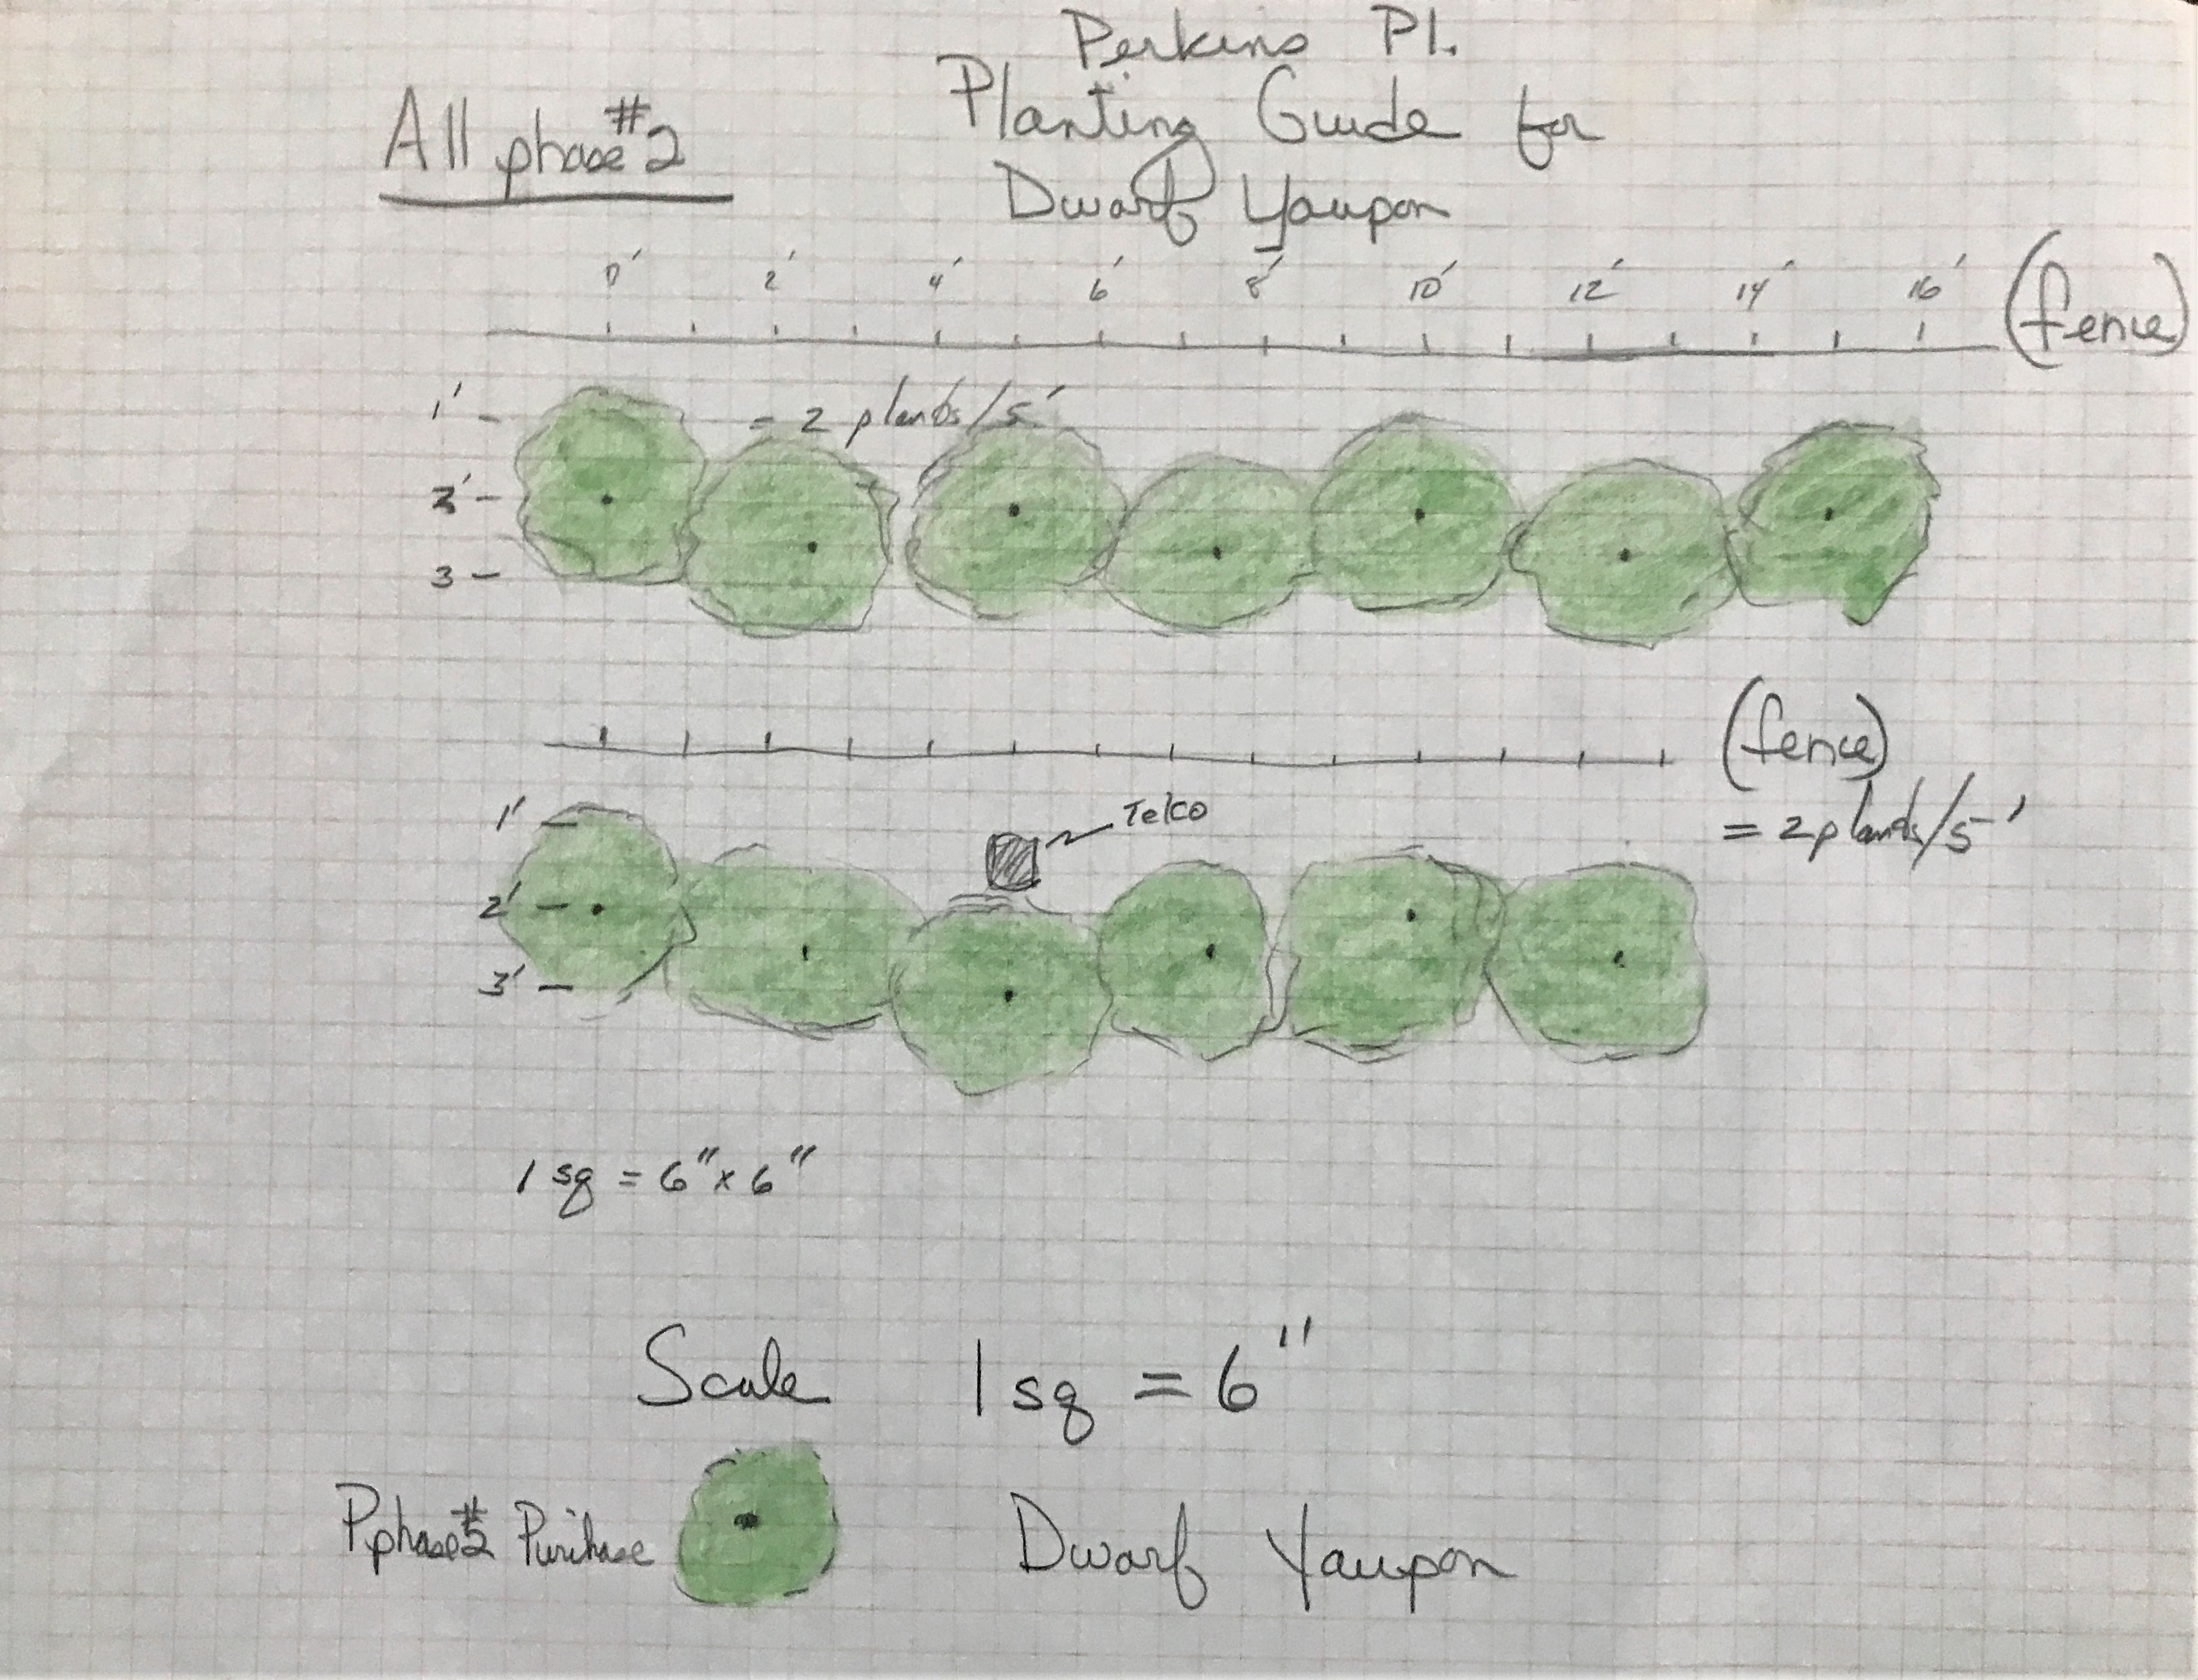 Perkins Pl.
Planting Guide for
Dwarf Yaupon
All phase #2
0' 2' 4' 6' 8' 10' 12' 14' 16'
(fence)
1'
= 2 plants/5'
2'
3
(fence)
= 2 plants/5'
Telco
1'
2'
3'
1 sq = 6" x 6"
Scale 1 sq = 6"
Pphase #2 Purchase
Dwarf Yaupon